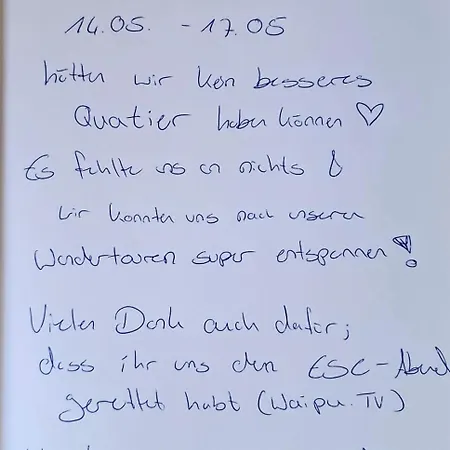 14.05. - 17.05
hätten wir kein besseres
Quatier haben können ♡
Es fehlte uns an nichts
wir konnten uns nach unseren
Wandertouren super entspannen!
Vielen Dank auch dafür,
dass ihr uns den ESC-Abend
gerettet habt (Waipu.TV)